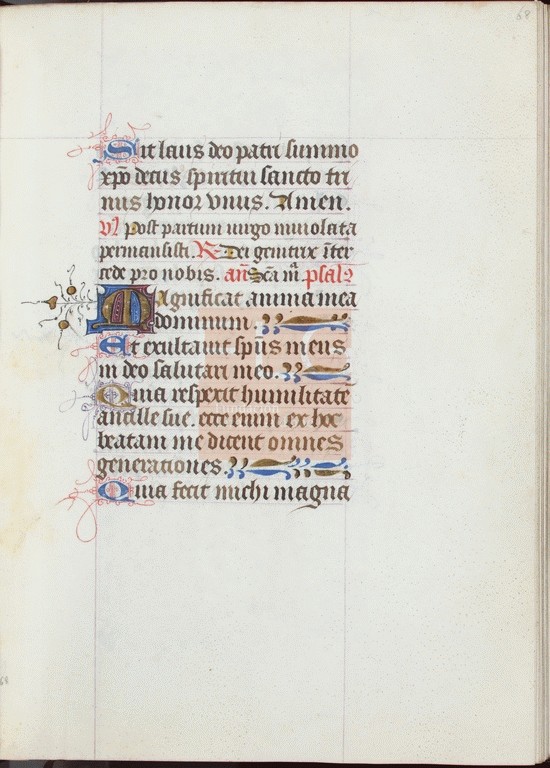 68
Sit laus deo patri summo
xp̄o decus spiritui sancto tri
nus honor vnus. Amen.
V̷ post partum uirgo inuiolata
permansisti. R̷ Dei genitrix īter
cede pro nobis. an̄ Sc̄a m̄ psal᷒
Magnificat anima mea
dominum.
Et exultauit sp̄us meus
in deo salutari meo.
Quia respexit humilitatē
ancille sue. ecce enim ex hoc
beatam me dicent omnes
generationes.
Quia fecit michi magna